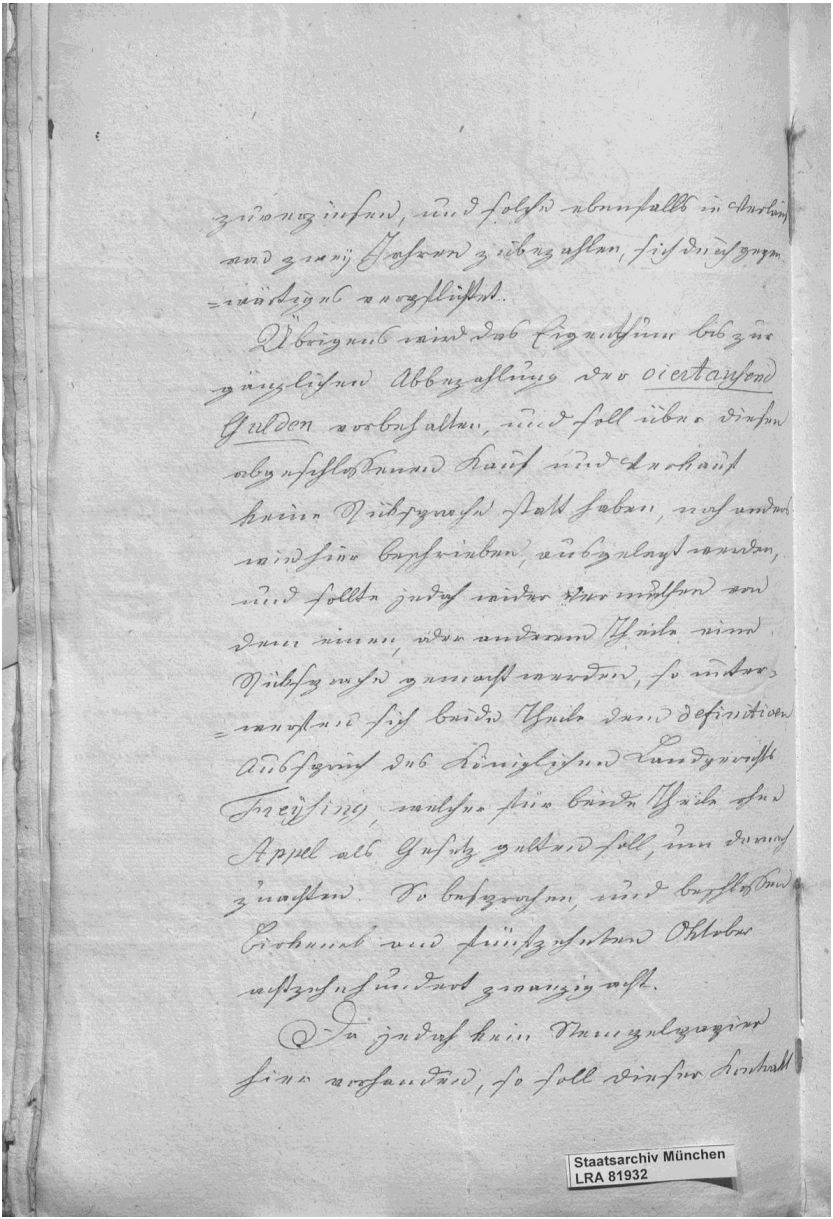 zuverzinsen, und solche ebenfalls in Verlauf
von zwey Jahren zubezahlen, sich durch gegen
=wärtiges verpflichtet.
Übrigens wird das Eigenthum bis zur
gänzlichen Abbezahlung der viertausend
Gulden vorbehalten, und soll über diesen
abgeschlossenen Kauf und Verkauf
keine Rüksprache statt haben, noch anders
wie hier beschrieben, ausgelegt werden,
und sollte jedoch wider Vermuthen von
dem einen, oder anderem Theile eine
Rüksprache gemacht werden, so unter-
=werfen sich beide Theile dem definitiven
Ausspruch des Königlichen Landgerichts
Freysing, welcher für beide Theile ohne
Appel als Gesetz gelten soll, um darnach
zuachten. So besprochen, und beschlossen
Birkeneck am fünfzehnten Oktober
achtzehnhundert zwanzig acht.
Da jedoch kein Stempelpapier
hier vorhanden, so soll dieser Kontrakt
Staatsarchiv München
LRA 81932